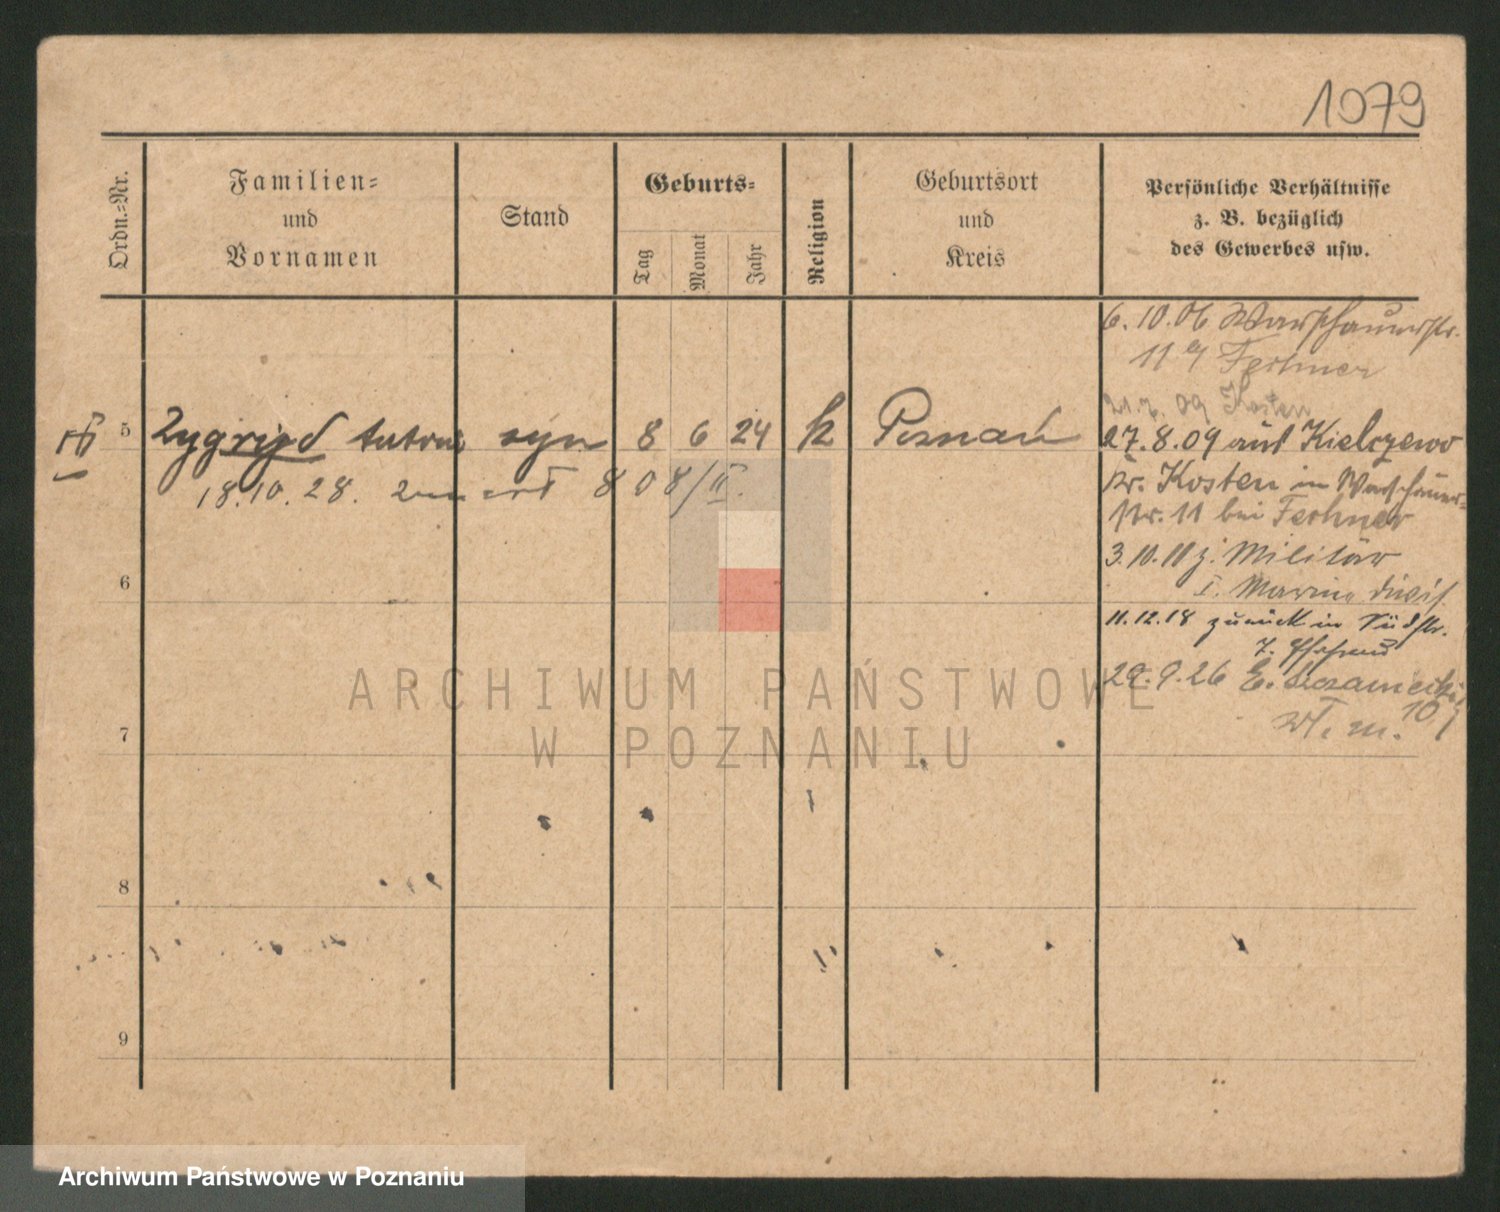 1079
Ordn.-Nr.
Familien-
und
Vornamen
Stand
Geburts-
Tag
Monat
Jahr
Religion
Geburtsort
und
Kreis
Persönliche Verhältnisse
z. B. bezüglich
des Gewerbes usw.
6.10.06 Warschauerstr.
11 Fechner
09 Kosten
5 Zygfryd syn 8 6 24 k Poznań
18.10.28. 808/II.
27.8.09 aus Kielczewo
Kr. Kosten in Warschauer-
str. 11 bei Fechner
3.10.11 z. Militär
I. Marine divis.
11.12.18 zurück in Südstr.
29.9.26
m. 10
6
7
8
9
ARCHIWUM PAŃSTWOWE
W POZNANIU
Archiwum Państwowe w Poznaniu